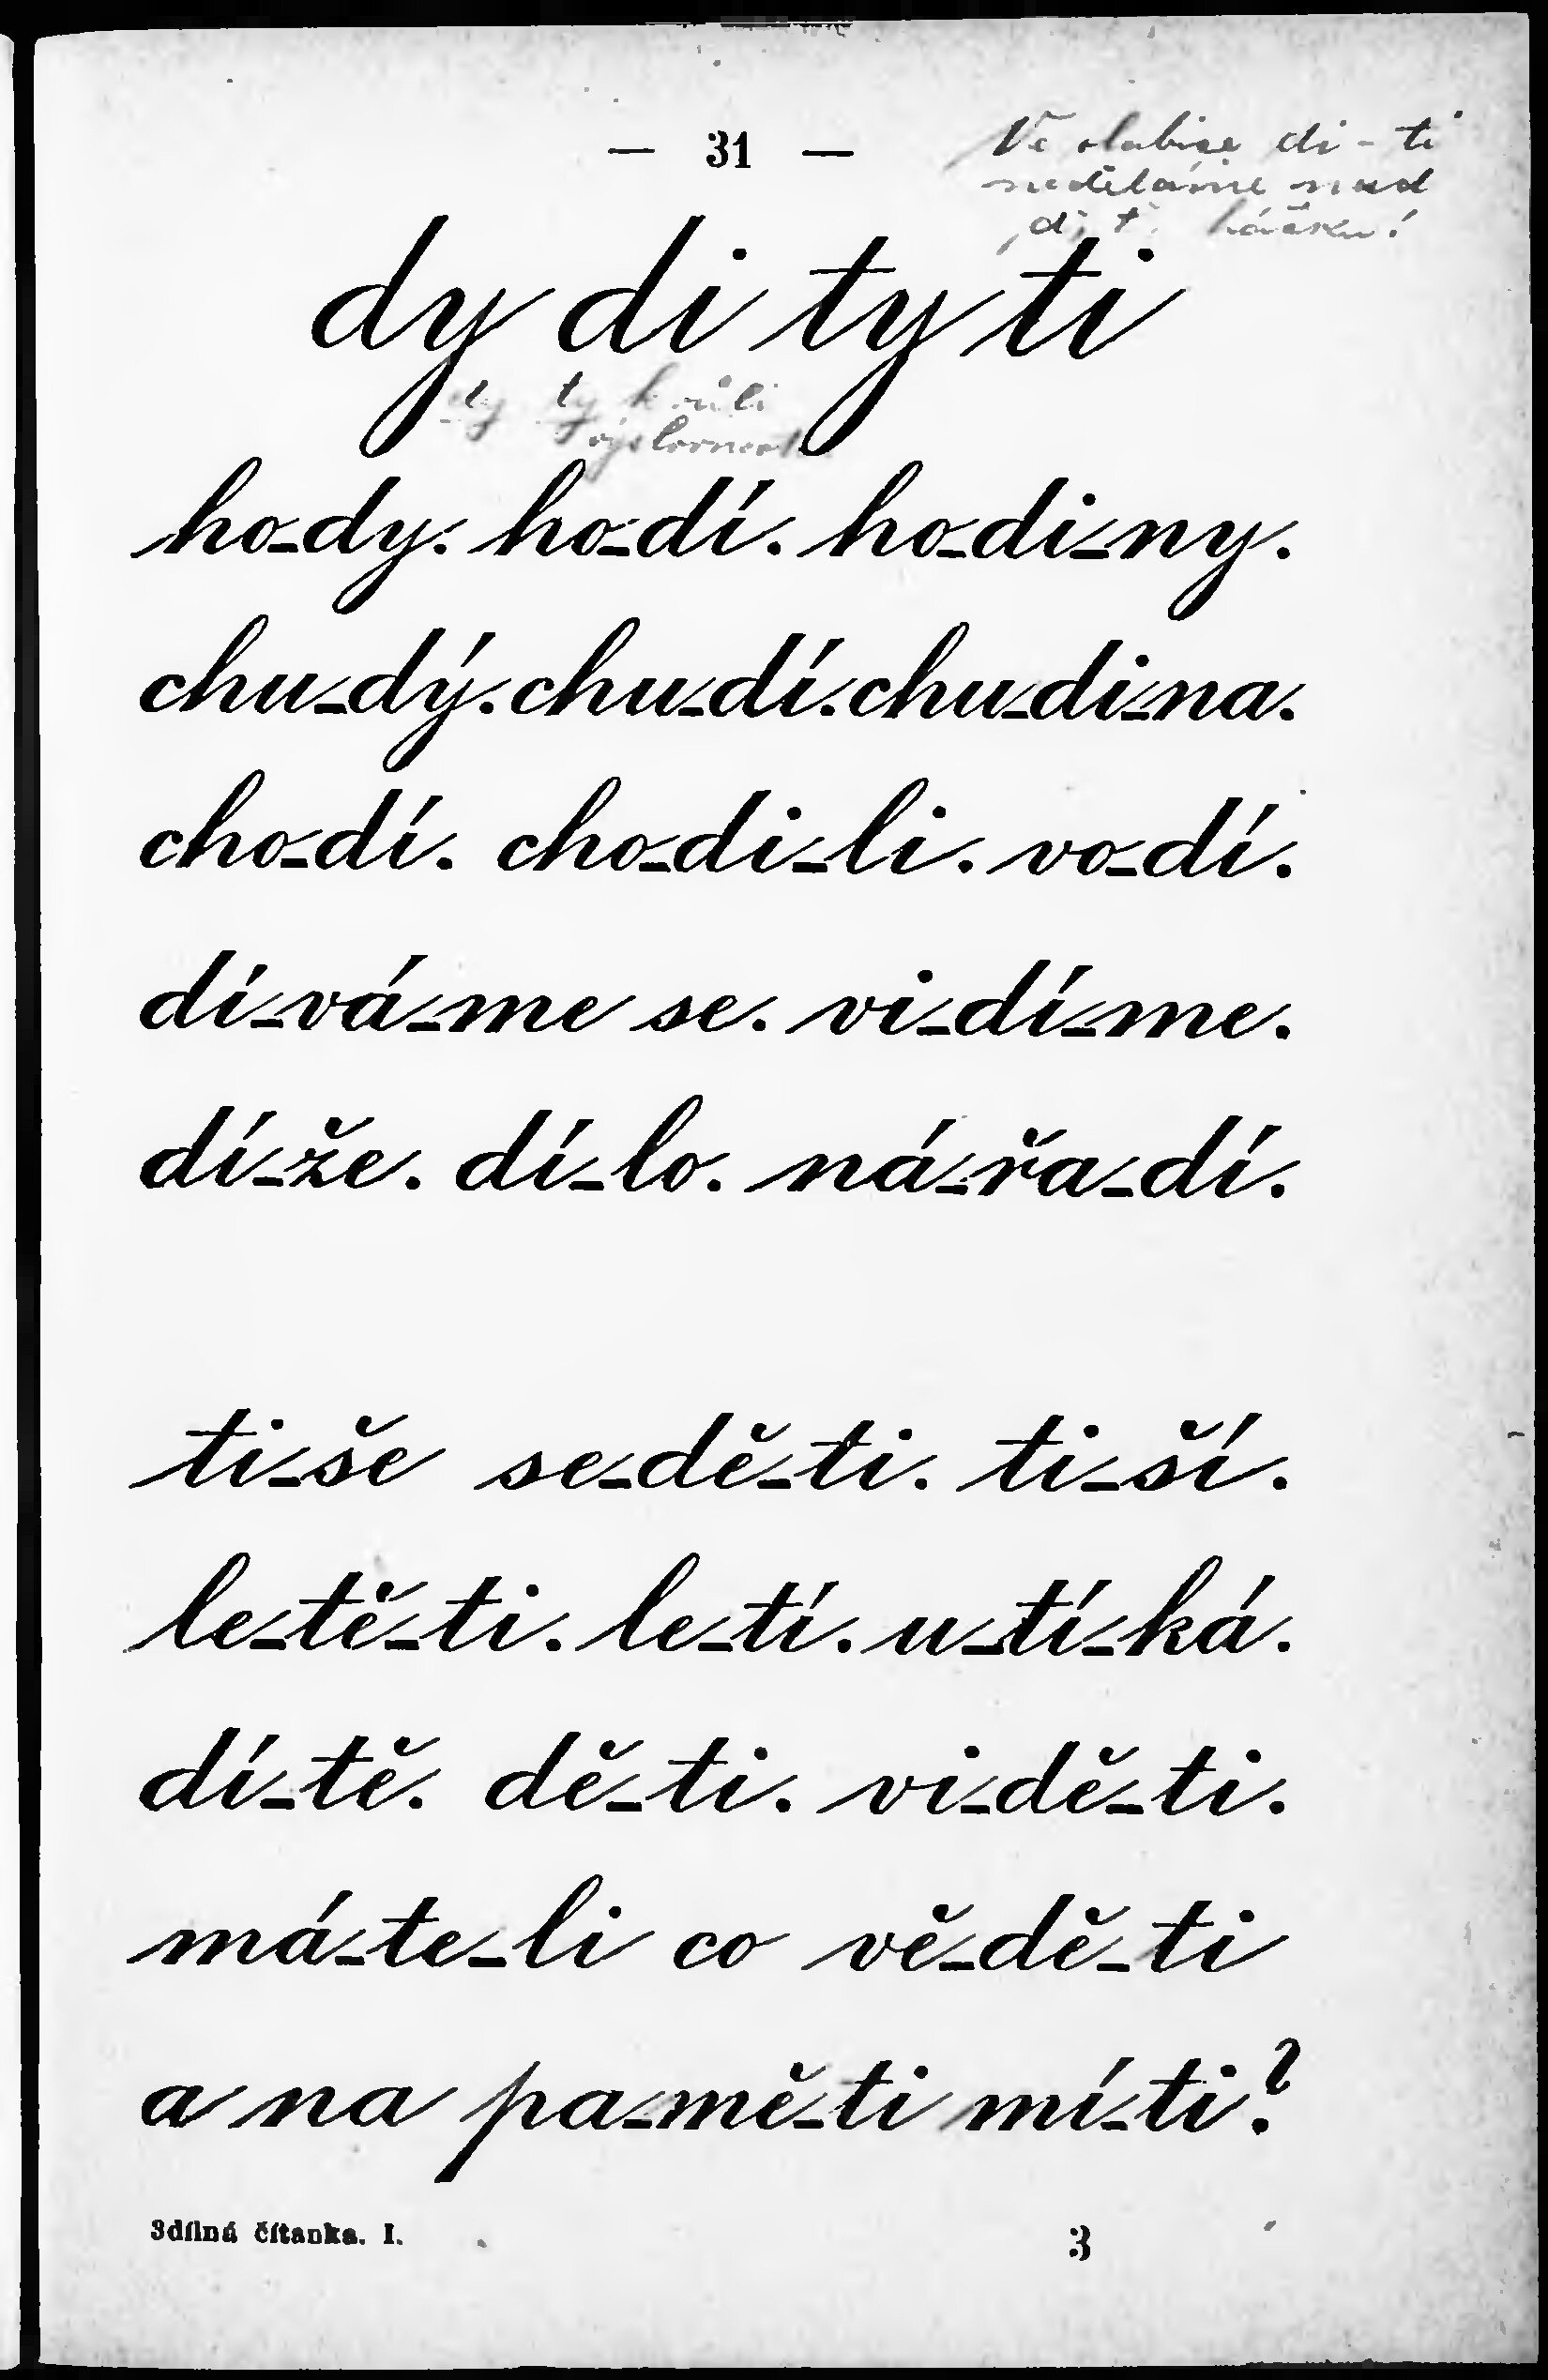 — 31 —
Ve slabice di - ti
neděláme nad
d, t háčku!
dy di ty ti
dy ty kvůli
výslovnosti
ho-dy. ho-dí. ho-di-ny.
chu-dý. chu-dí. chu-di-na.
cho-dí. cho-di-li. vo-dí.
dí-vá-me se. vi-dí-me.
dí-že. dí-lo. ná-řa-dí.
ti-še se-dě-ti. ti-ší.
le-tě-ti. le-tí. u-tí-ká.
dí-tě. dě-ti. vi-dě-ti.
má-te-li co vě-dě-ti
a na pa-mě-ti mí-ti?
3dílná čítanka. I. 3